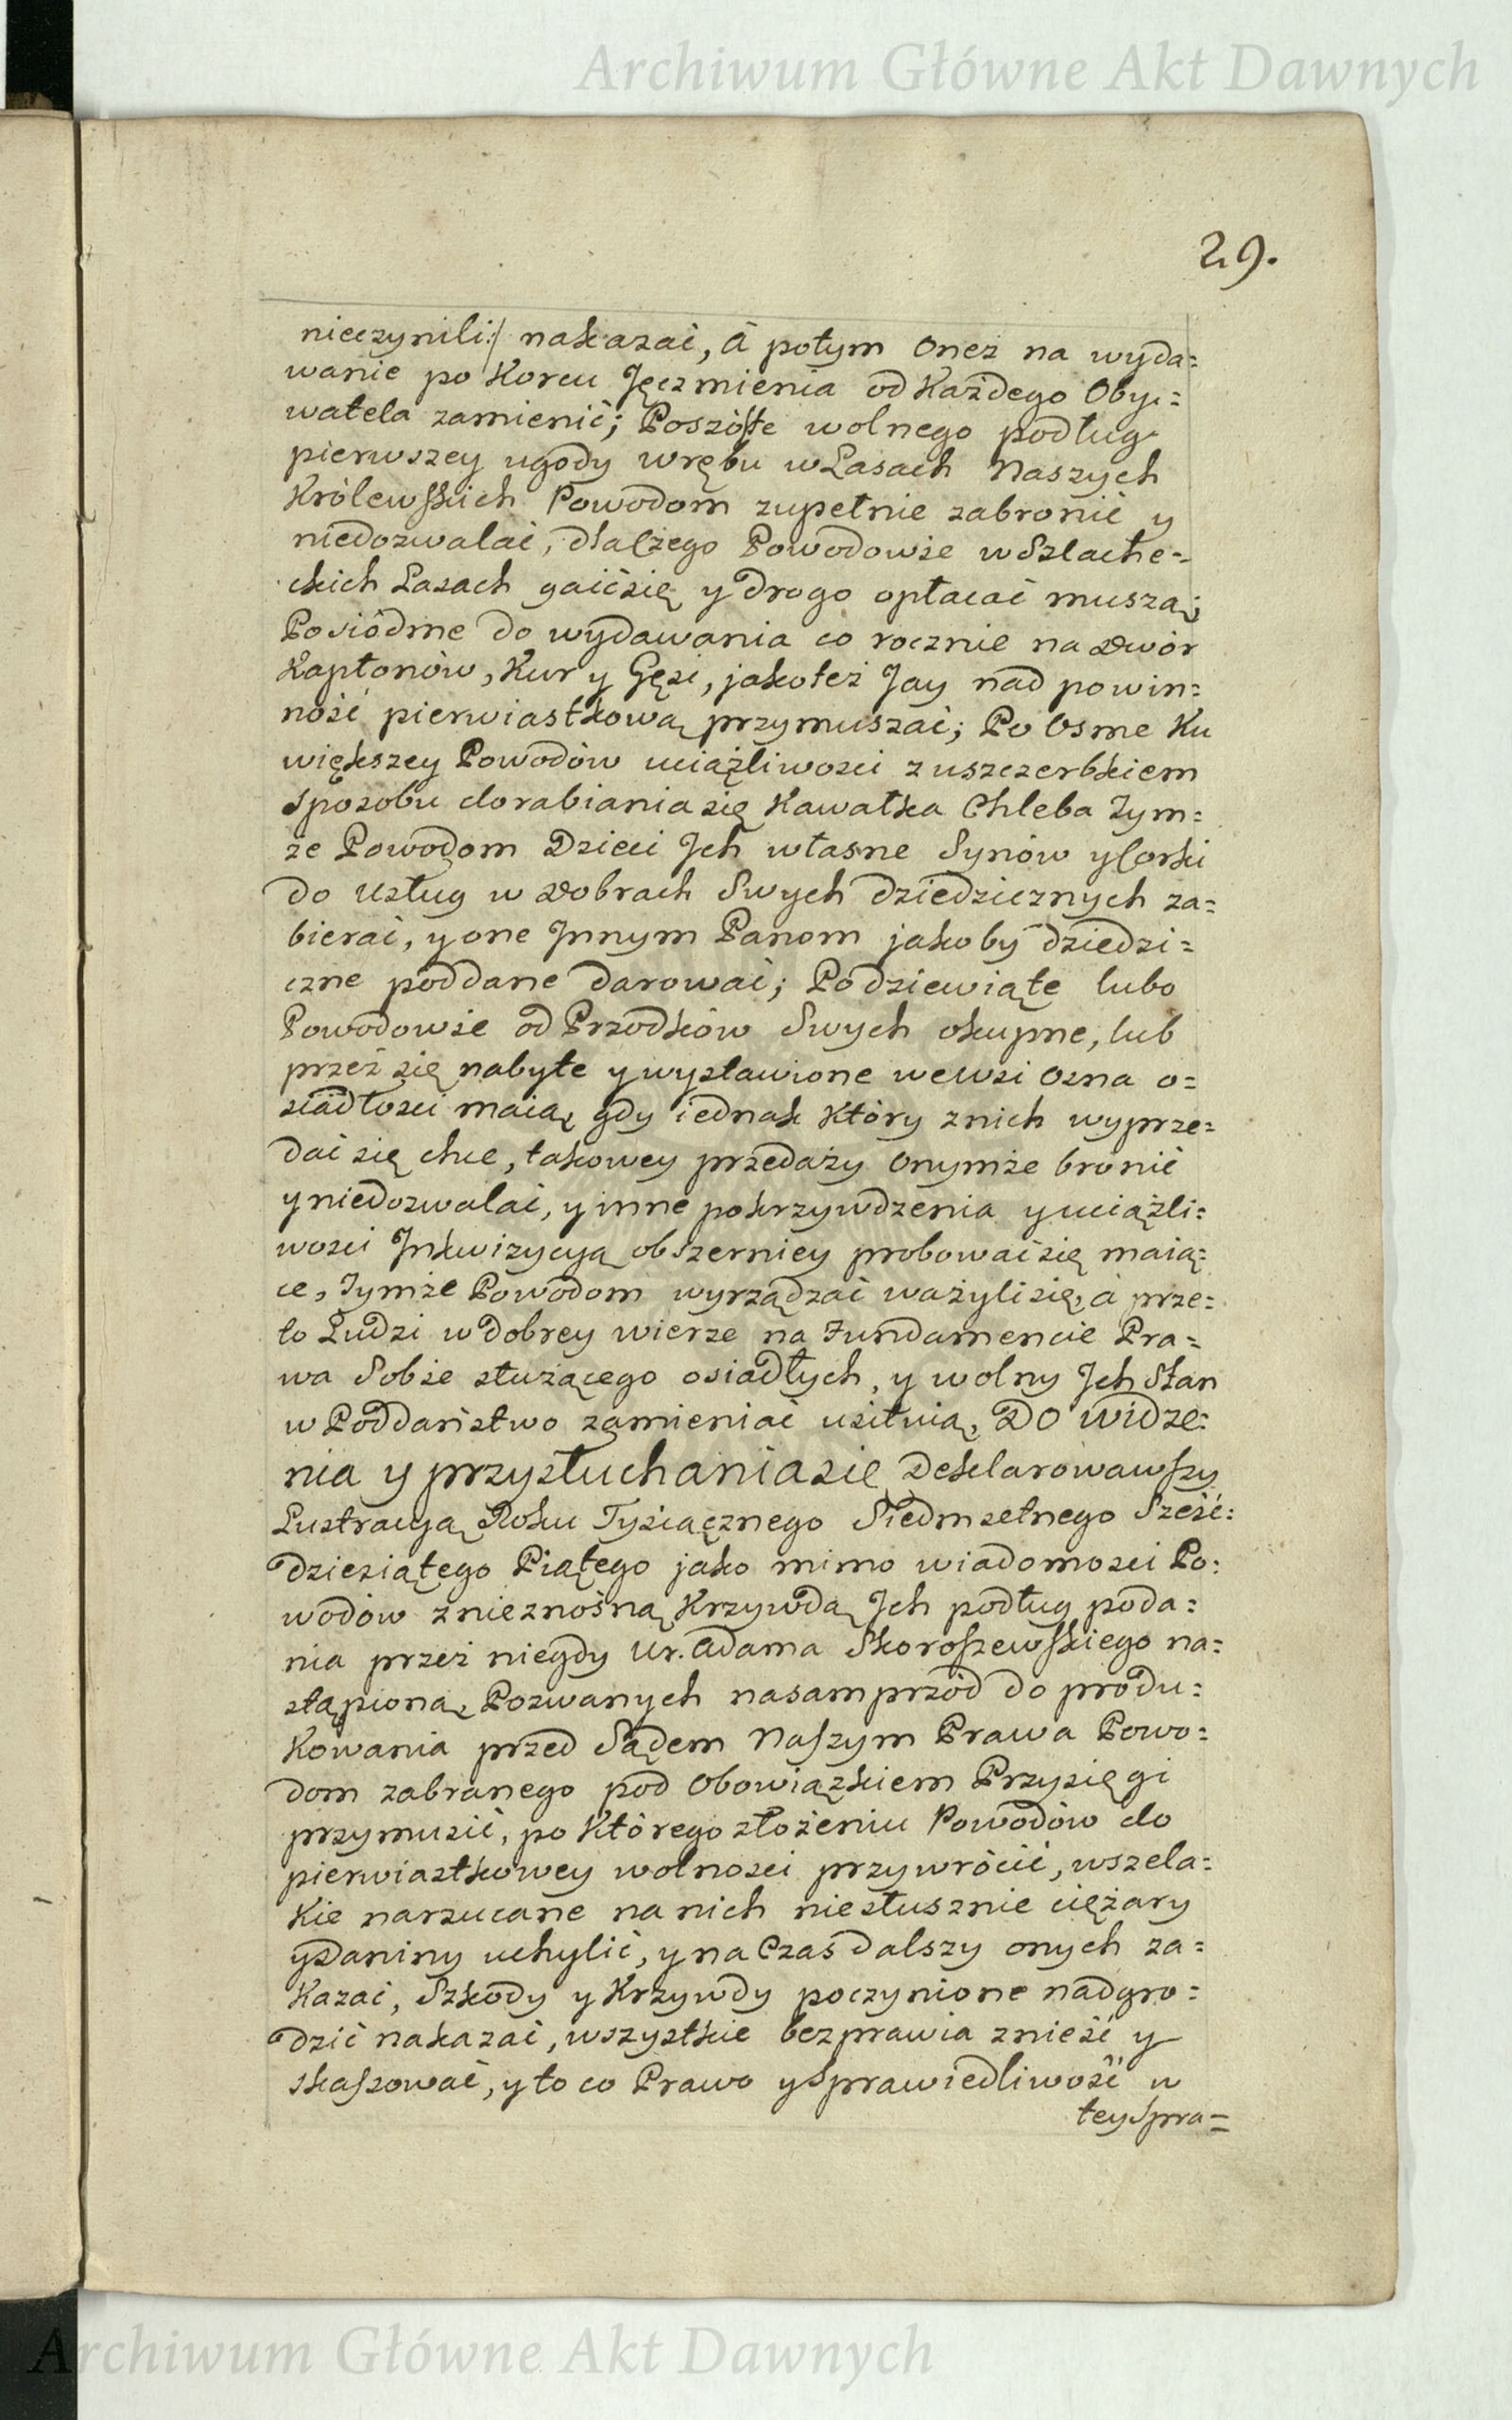 Archiwum Główne Akt Dawnych
29.
nieczynili:/ nakazać, á potym onez na wyda=
wanie po Korcu Jęczmienia od Każdego Oby=
watela zamienić; Poszóste wolnego podług
pierwszey ugody wrębu w Lasach Naszych
Królewskich Powodom zupełnie zabronić y
niedozwalać, dla czego Powodowie w Szlache=
ckich Lasach gaić się y drogo opłacać muszą;
Posiódme do wydawania co rocznie na dwór
Kapłonów, Kur y Gęsi, jakoteż Jay nad powin=
ność pierwiastkową przymuszać; Po Osme Ku
większey Powodów uciążliwosci z uszczerbkiem
sposobu dorabiania się Kawałka Chleba Tym=
że Powodom Dzieci Jch własne Synów y Corki
do usług w dobrach Swych dziedzicznych za=
bierać, y one Jnnym Panom jakoby dziedzi=
czne poddane darować; Podziewiąte lubo
Powodowie od Przodków Swych okupne, lub
przez się nabyte y wystawione wewsi Osna o=
siadłosci maią, gdy iednak Który znich wyprze=
dać się chce, takowey przedaży Onymże bronić
y niedozwalać, y inne pokrzywdzenia y uciążli=
wosci Jnkwizycyą obszerniey probować się maią=
ce, Tymże Powodom wyrządzać ważyli się, á prze=
to Ludzi w dobrey wierze na Fundamencie Pra=
wa Sobie służącego osiadłych, y wolny Jch Stan
w Poddaństwo zamieniać usiłuią, DO widze=
nia y przysłuchania sie Deklarowawszy
Lustracyą Roku Tysiącznego Siedmsetnego Sześć=
dziesiątego Piątego jako mimo wiadomosci Po=
wodów znieznośną Krzywdą Jch podług poda=
nia przez niegdy Ur. Adama Skoroszewskiego na=
stąpioną, Pozwanych nasamprzód do produ=
Kowania przed Sądem Naszym Prawa Powo=
dom zabranego pod Obowiązkiem Przysięgi
przymusić, po Którego złożeniu Powodów do
pierwiastkowey wolnosci przywrócić, wszela=
Kie narzucane na nich niesłusznie ciężary
y daniny uchylić, y na Czas dalszy onych za=
Kazać, Szkody y Krzywdy poczynione nadgro=
dzić nakazać, wszystkie bezprawia znieść y
skassować, y to co Prawo y Sprawiedliwość w
tey Spra=
Archiwum Główne Akt Dawnych